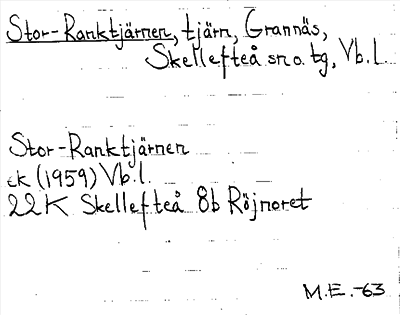 Stor-Ranktjärnen, tjärn, Grannäs,
Skellefteå sn o. tg, Vb.l.
Stor-Ranktjärnen
ek (1959) Vb.l.
22K Skellefteå 8b Röjnoret
M.E.-63